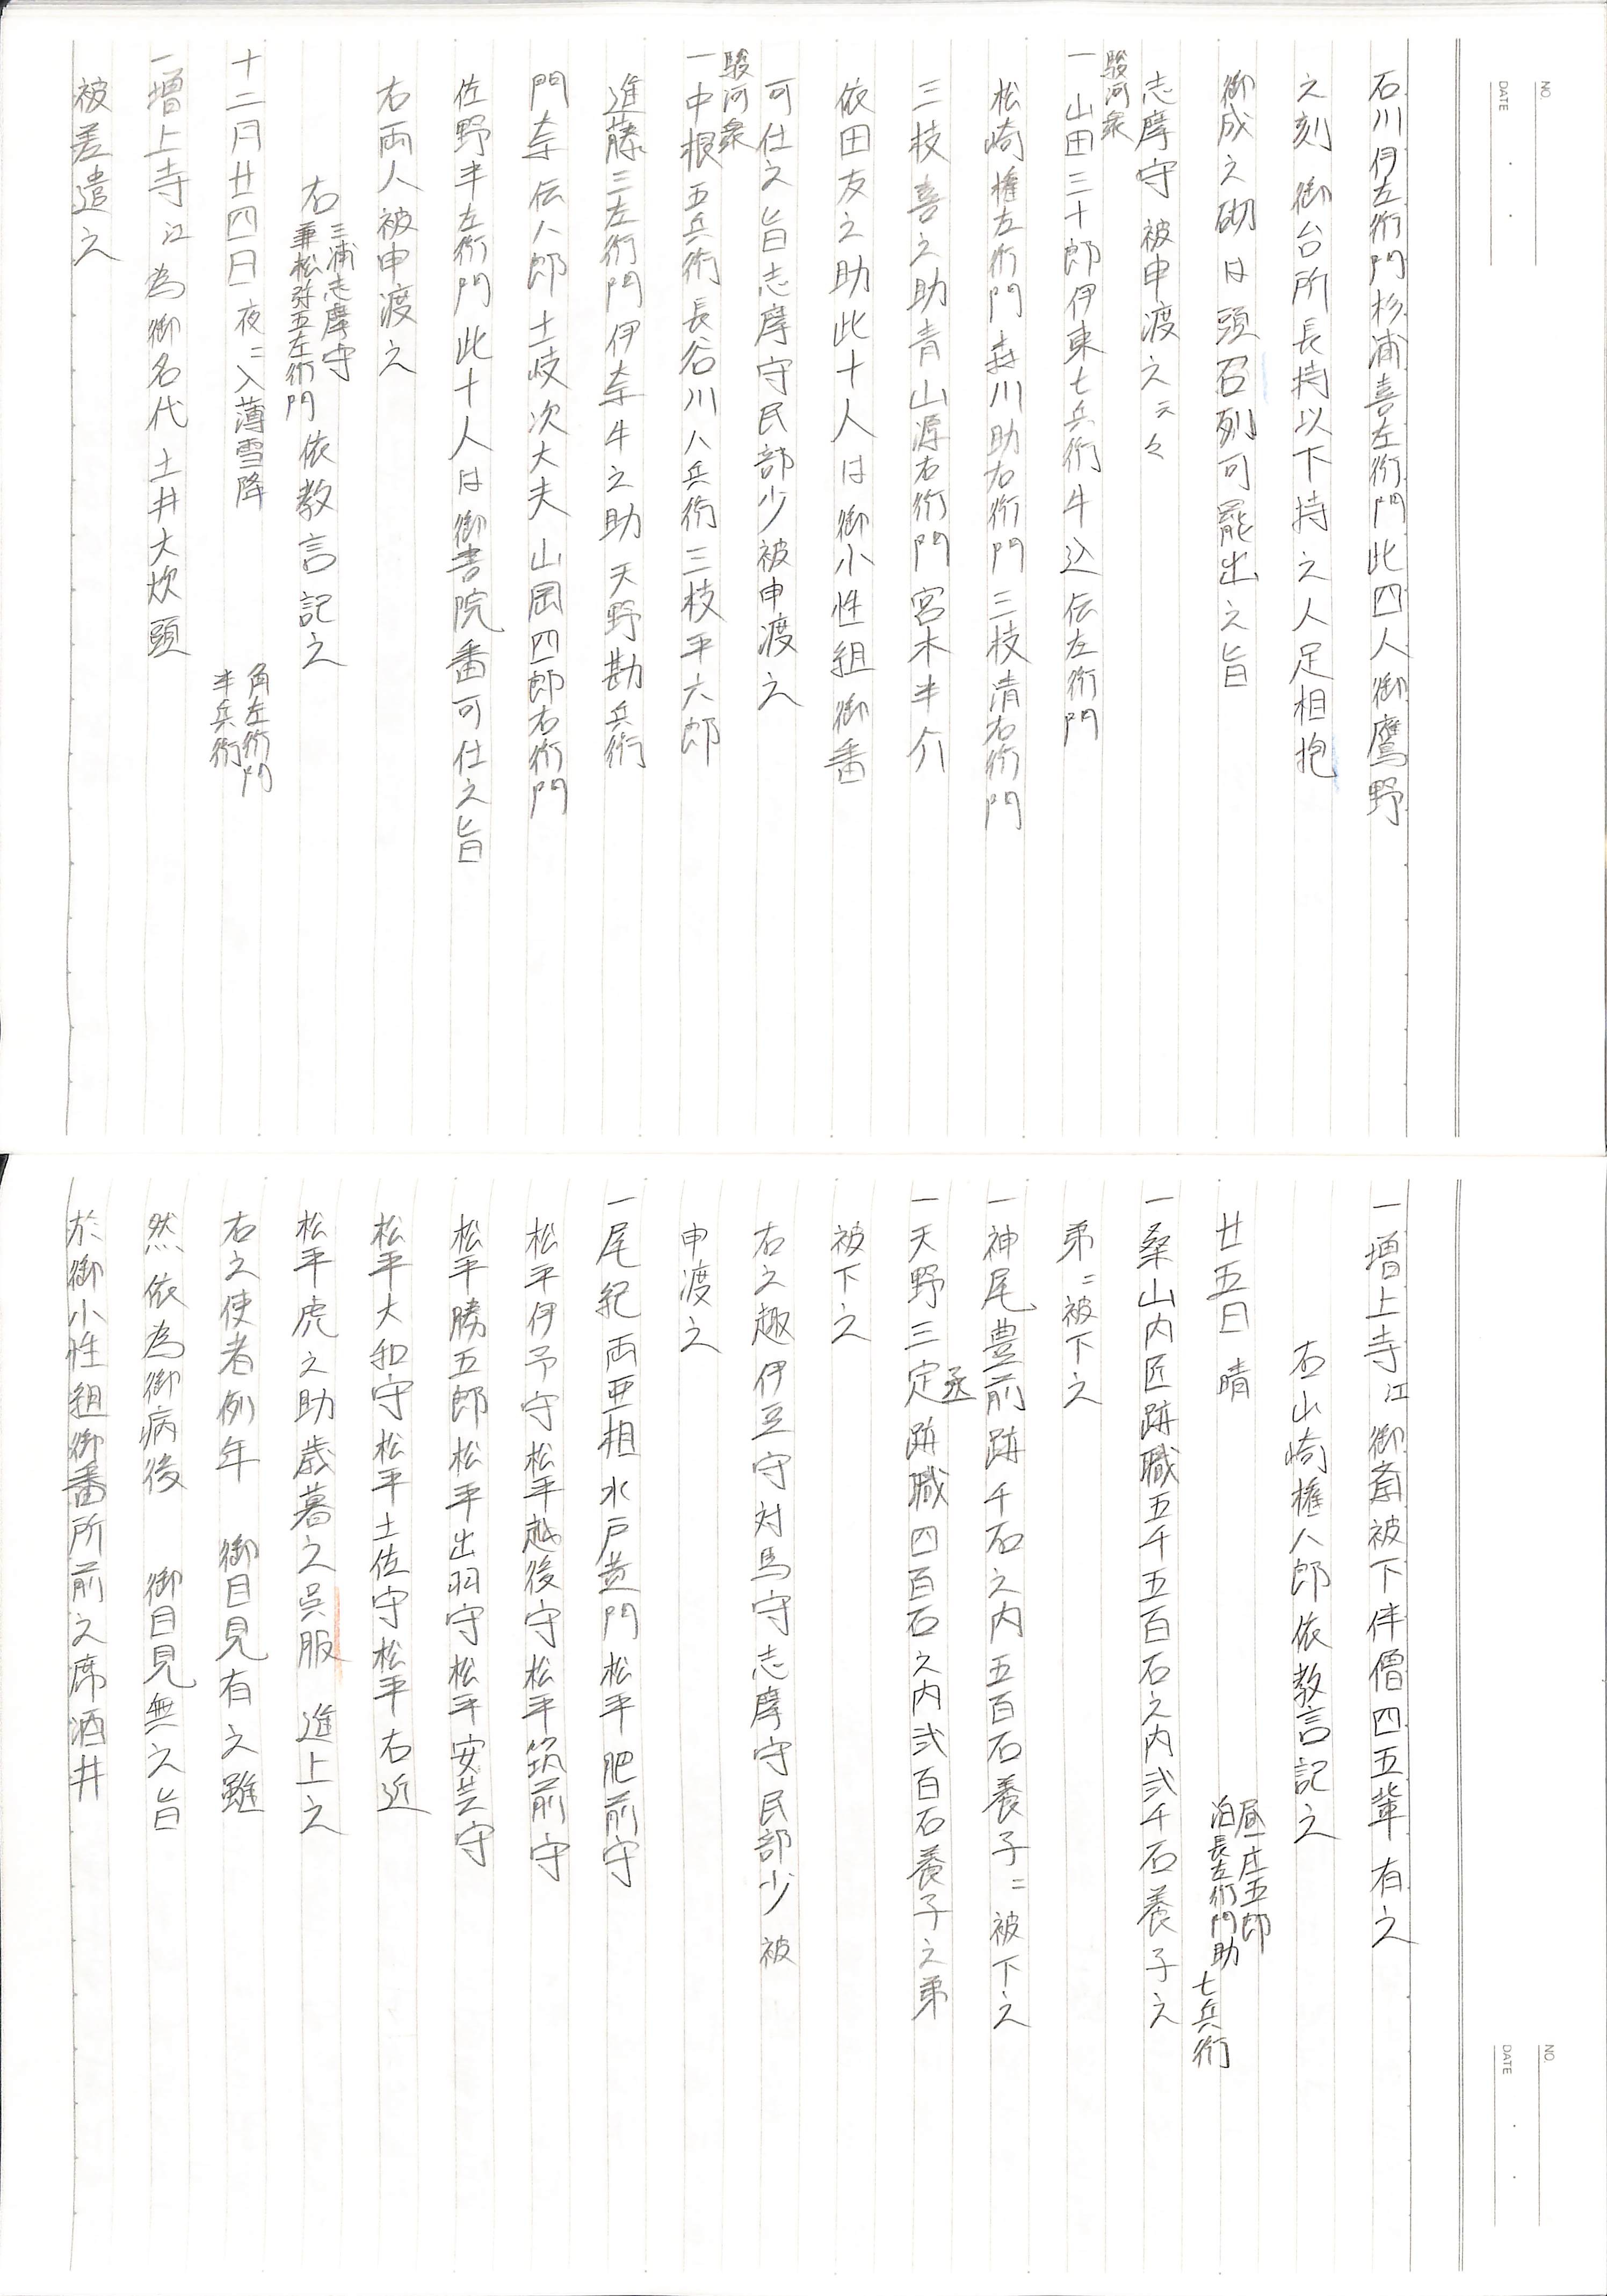 NO.
DATE
石川伊左衛門杉浦喜左衛門此四人御鷹野
之刻 御台所長持以下持之人足相抱
御成之砌は頭召列可罷出之旨
志摩守 被申渡之云々
駿河衆
一 山田三十郎伊東七兵衛牛込伝左衛門
松崎権左衛門森川助右衛門三枝清右衛門
三枝喜之助青山源右衛門宮木半介
依田友之助此十人は御小性組御番
可仕之旨志摩守民部少被申渡之
駿河衆
一中根五兵衛長谷川八兵衛三枝平六郎
進藤三左衛門伊奈牛之助天野勘兵衛
門奈伝八郎土岐次大夫山岡四郎右衛門
佐野半左衛門此十人は御書院番可仕之旨
右両人被申渡之
右 三浦志摩守 兼松弥五左衛門 依教言記之
十二月廿四日 夜ニ入薄雪降 角左衛門 半兵衛
一増上寺江為御名代土井大炊頭
被差遣之
NO.
DATE
一増上寺江御斎被下伴僧四五輩有之
右山崎権八郎依教言記之
廿五日 晴 昼庄五郎 泊長左衛門助 七兵衛
一桑山内匠跡職五千五百石之内弐千石養子之
弟ニ被下之
一神尾豊前跡千石之内五百石養子ニ被下之
一天野三定丞跡職四百石之内弐百石養子之弟
被下之
右之趣伊豆守対馬守志摩守民部少被
申渡之
一尾紀両亜相水戸黄門松平肥前守
松平伊予守松平越後守松平筑前守
松平勝五郎松平出羽守松平安芸守
松平大和守松平土佐守松平右近
松平虎之助歳暮之呉服 進上之
右之使者例年 御目見有之雖
然依為御病後 御目見無之旨
於御小性組御番所前之席酒井